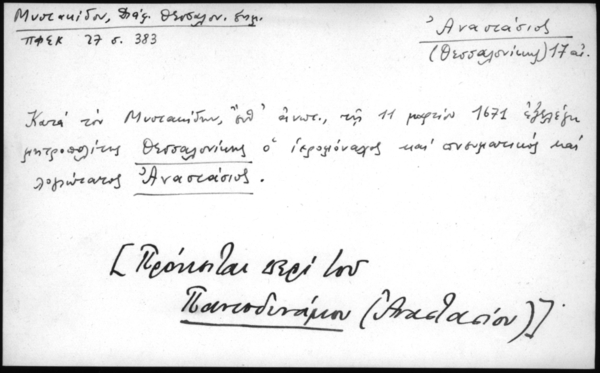 Μυστακίδου, Διάφ. Θεσσαλον. σημ.
ΠΦΣΚ 27 σ. 383
Ἀναστάσιος
(Θεσσαλονίκης) 17 αἰ.
Κατά τόν Μυστακίδην, ἔνθ' ἀνωτ., τῇ 11 μαρτίου 1671 ἐξελέγη
μητροπολίτης Θεσσαλονίκης ὁ ἱερομόναχος καί πνευματικός καί
λογιώτατος Ἀναστάσιος.
[Πρόκειται περί τοῦ
Παντοδυνάμου (Ἀναστασίου)].